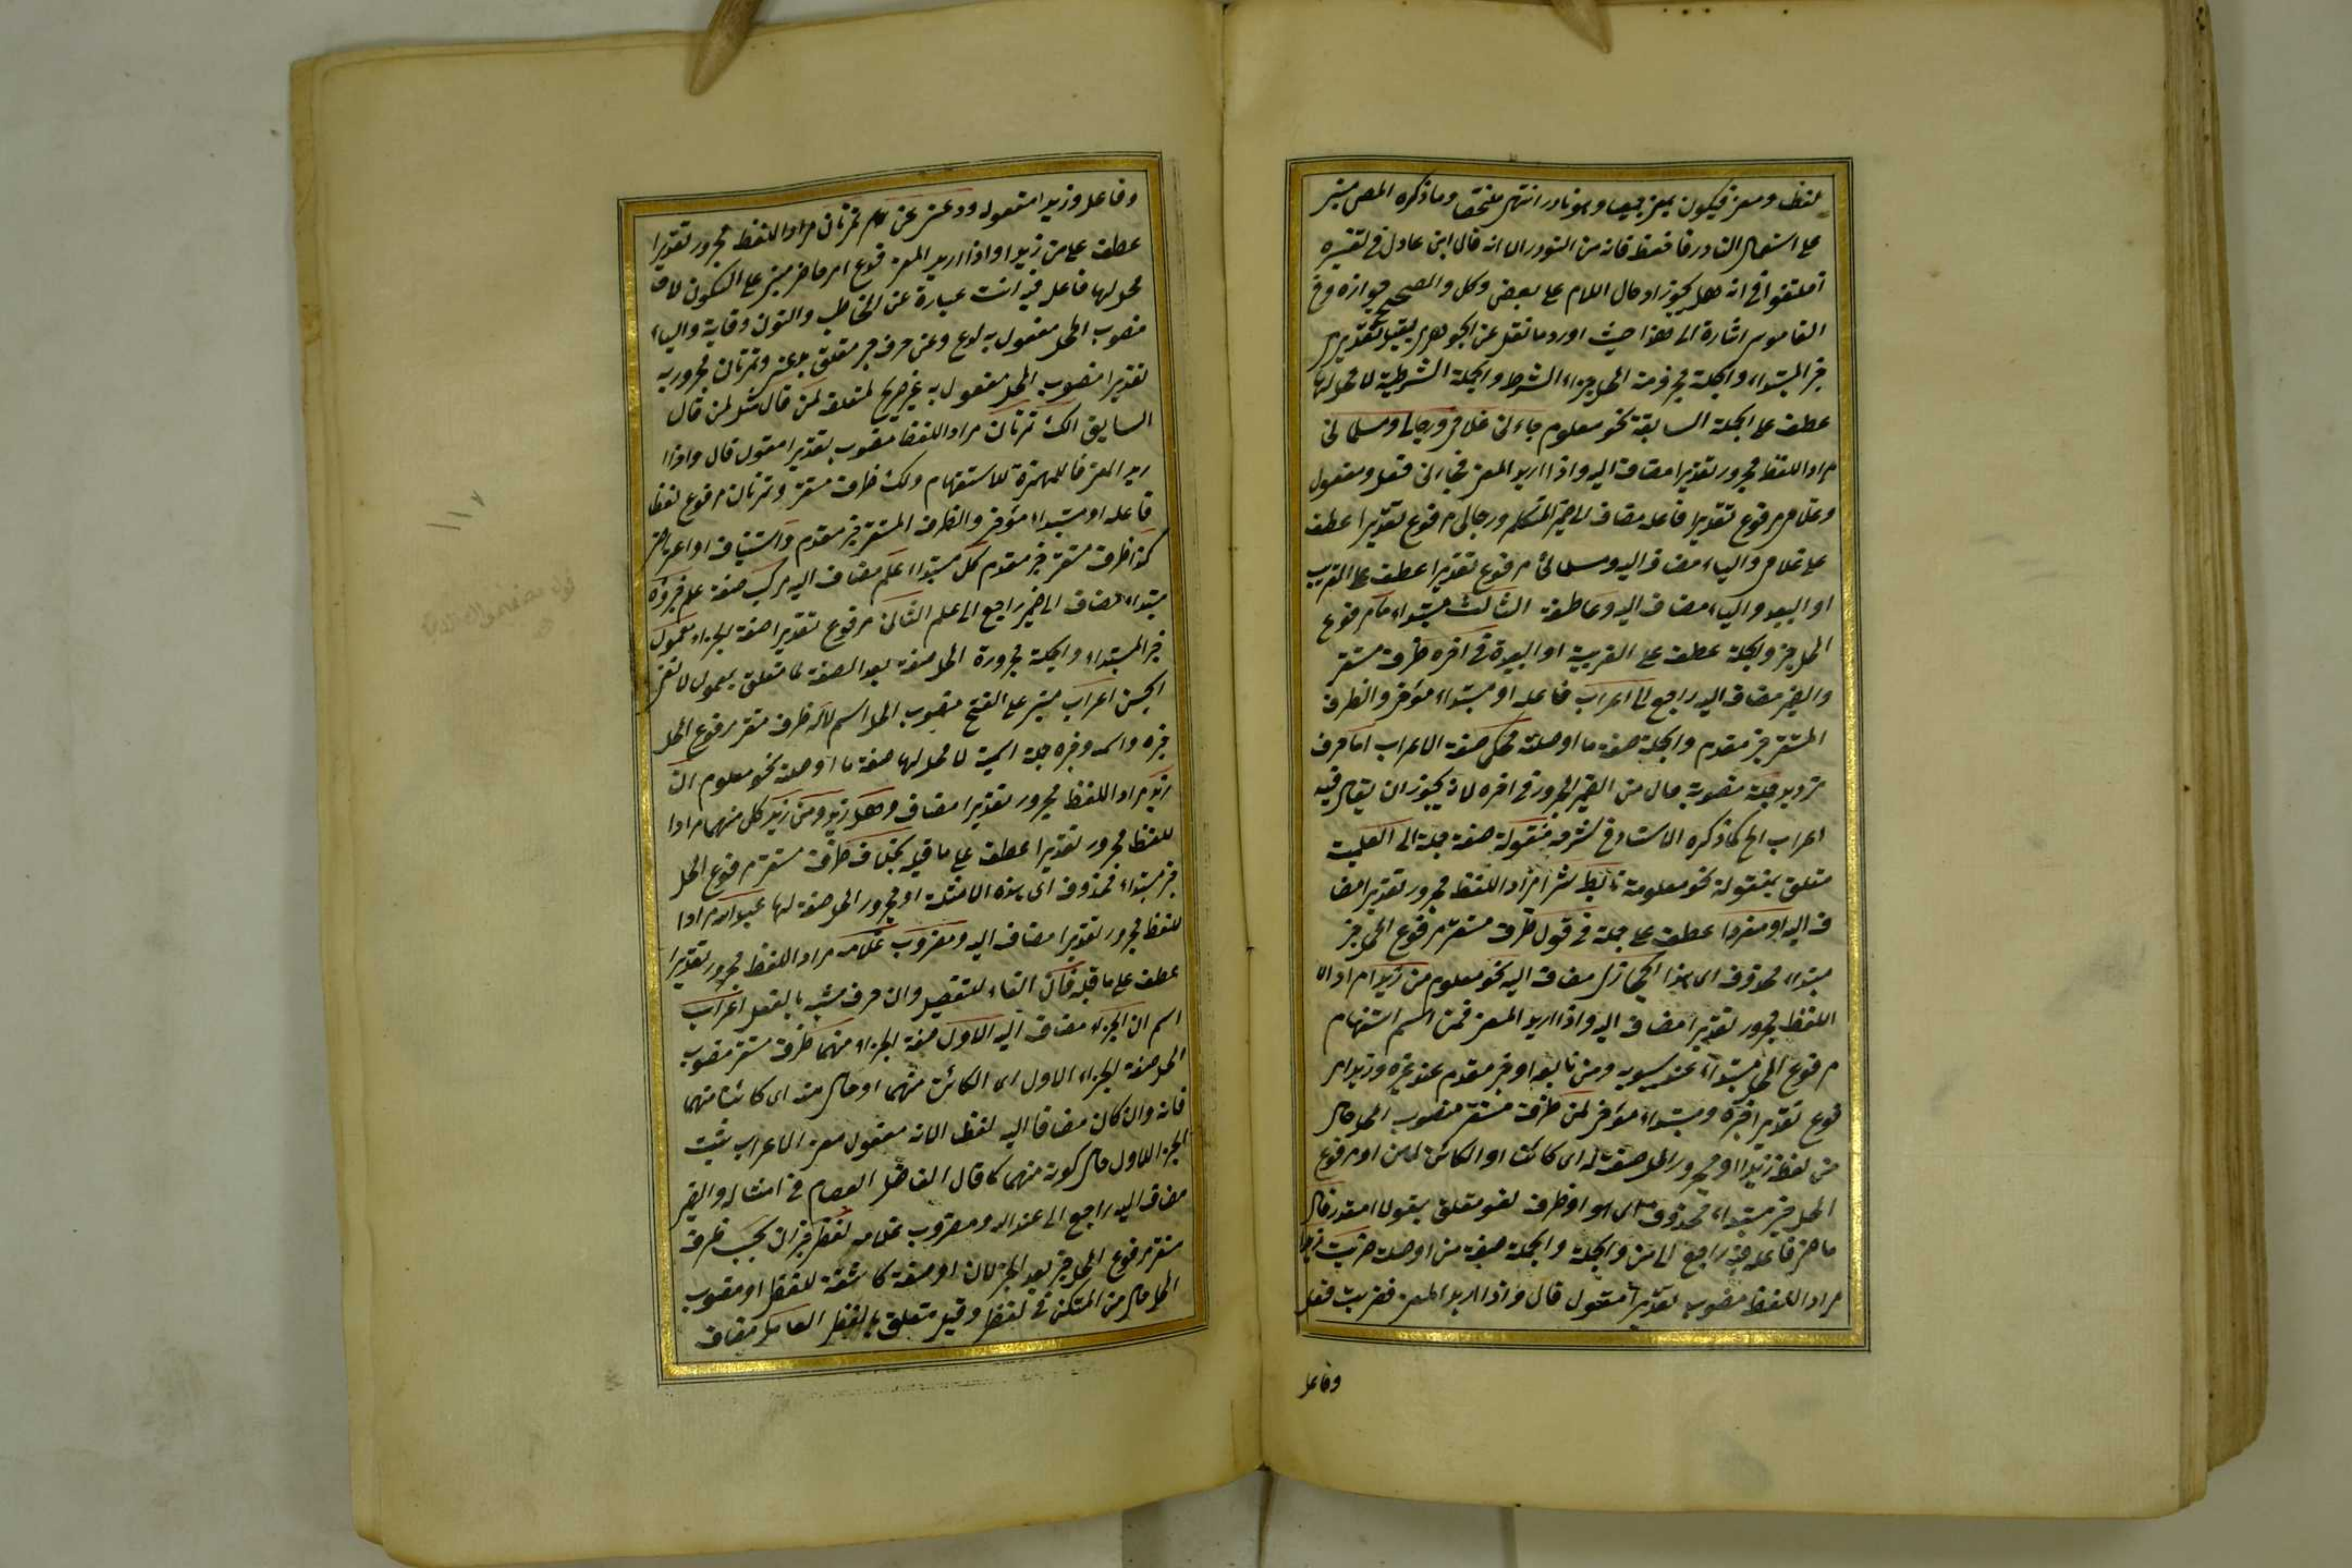 لفظ ومعنى فيكون بمعنى جميعا وهو نادر انتهى ملخصا وما ذكره المص مبنى
على استعمال النادر فاحفظ فانه من النوادر الا انه قال ابن عادل فى تفسيره
اختلفوا فى انه هل يجوز ادخال اللام على بعض وكل والصحيح جوازه وفى
القاموس اشارة الى هذا حيث اورد ما نقل عن الجوهرى بقيل تقديرى
خبر المبتداء والجملة مجزومة المحل جزاء الشرط والجملة الشرطية لا محل لها
عطف على الجملة السابقة نحو معلوم جاءنى غلامى ورجالى ومسلمائى
مراد اللفظ مجرور تقديرا مضاف اليه واذا اريد المعنى فجاءنى فعل ومفعول
وغلامى مرفوع تقديرا فاعله مضاف الى ضمير المتكلم ورجالى مرفوع تقديرا عطف
على غلامى والياء مضاف اليه ومسلمائى مرفوع تقديرا عطف على القريب
او البعيد والياء مضاف اليه وعاطفة الثالث مبتداء ما مرفوع
المحل خبره والجملة عطف على القريبة او البعيدة فى آخره ظرف مستقر
والضمير مضاف اليه راجع الى ما اعراب فاعله او مبتداء مؤخر والظرف
المستقر خبر مقدم والجملة صفة ما او صلته محكى صفة الاعراب اما حرف
ترديد جملة منصوبة حال من الضمير المجرور فى آخره لانه يجوز ان يقال فيه
اعراب الخ كما ذكره الاستاد فى شرحه منقولة صفة جملة الى العلمية
متعلق بمنقولة نحو معلومة تأبط شرا مراد اللفظ مجرور تقديرا مضا
ف اليه او مفردا عطف على جملة فى قول ظرف مستقر مرفوع المحل خبر
مبتداء محذوف اى هذا الحجازى مضاف اليه نحو معلوم من زيدا مراد ال
اللفظ مجرور تقديرا مضاف اليه واذا اريد المعنى فمن اسم استفهام
مرفوع المحل مبتداء عند سيبويه ومن تابعه او خبر مقدم عند غيره وزيدا مر
فوع تقديرا خبره ومبتداء مؤخر لمن ظرف مستقر منصوب المحل حال
من لفظ زيدا او مجرور المحل صفة له اى كائنا او الكائن لمن او مرفوع
المحل خبر مبتداء محذوف اى هو او ظرف لغو متعلق بقولا مقدر قال
ماضى فاعله فيه راجع الى من والجملة والجملة صفة من او صلته ضربت زيدا
مراد اللفظ منصوب تقديرا مقول قال واذا اريد المعنى فضربت فعل
وفاعل
وفاعل وزيدا مفعوله ودعنى عن تمرتان مراد اللفظ مجرور تقديرا
عطف على من زيدا واذا اريد المعنى فدع امر حاضر مبنى على السكون لا
محل لها فاعله فيه انت عبارة عن المخاطب والنون وقاية والياء
منصوب المحل مفعول به لدع وعن حرف جر متعلق بدعنى وتمرتان مجرور به
تقديرا منصوب المحل مفعول به غير صريح لمتعلقه لمن قال مثل لمن قال
السابق الك تمرتان مراد اللفظ منصوب تقديرا مقول قال واذا ا
ريد المعنى فالهمزة للاستفهام ولك ظرف مستقر وتمرتان مرفوع لفظا
فاعله او مبتداء مؤخر والظرف المستقر خبر مقدم واستيناف او اعتراض
كذا ظرف مستقر خبر مقدم كل مبتداء علم مضاف اليه مركب صفة علم جزؤه
مبتداء مضاف الى ضمير راجع الى علم الثانى مرفوع تقديرا صفة الجزء معمول
خبر المبتداء والجملة مجرورة المحل صفة بعد الصفة لما متعلق بمعمول لا لنفى
الجنس اعراب مبنى على الفتح منصوب المحل اسم لا له ظرف مستقر مرفوع المحل
خبره واسمه وخبره جملة اسمية لا محل لها صفة ما او صلته نحو معلوم ان
زيد مراد اللفظ مجرور تقديرا مضاف وهل زيد ومن زيد كل منهما مرادا
للفظ مجرور تقديرا عطف على ما قبله بخلاف ظرف مستقر مرفوع المحل
خبر مبتداء محذوف اى هذه الامثلة او مجرور المحل صفة لها عبد الله مرادا
للفظ مجرور تقديرا مضاف اليه ومضروب غلامه مراد اللفظ مجرور تقديرا
عطف على ما قبله فان الفاء للتفصيل وان حرف مشبه بالفعل اعراب
اسم ان الجزء مضاف اليه الاول صفة الجزء منهما ظرف مستقر منصوب
المحل صفة الجزء الاول اى الكائن منهما او حال منه اى كائنا منهما
فانه وان كان مضافا اليه لفظا الا انه مفعول معنى الاعراب يثبت
الجزء الاول حال كونه منهما كما قال الفاضل العصام فى امثاله والضمير
مضاف اليه راجع الى عبد الله ومضروب غلامه لفظى خبر ان بحسب ظرف
مستقر مرفوع المحل خبر بعد الخبر لان او صفة كاشفة للفظى او منصوب
المحل حال من المستكن فى لفظى وقيل متعلق بالفظى العامل مضاف
١١٧